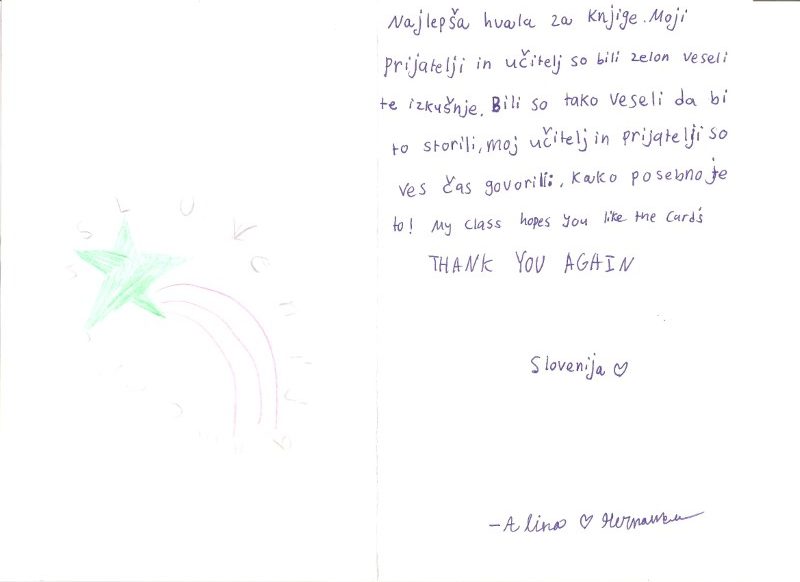 Najlepša hvala za knjige. Moji
prijatelji in učitelj so bili zelon veseli
te izkušnje. Bili so tako veseli da bi
to storili, moj učitelj in prijatelji so
ves čas govorili:, kako posebno je
to! My class hopes you like the cards
THANK YOU AGAIN
Slovenija ♡
- Alina ♡